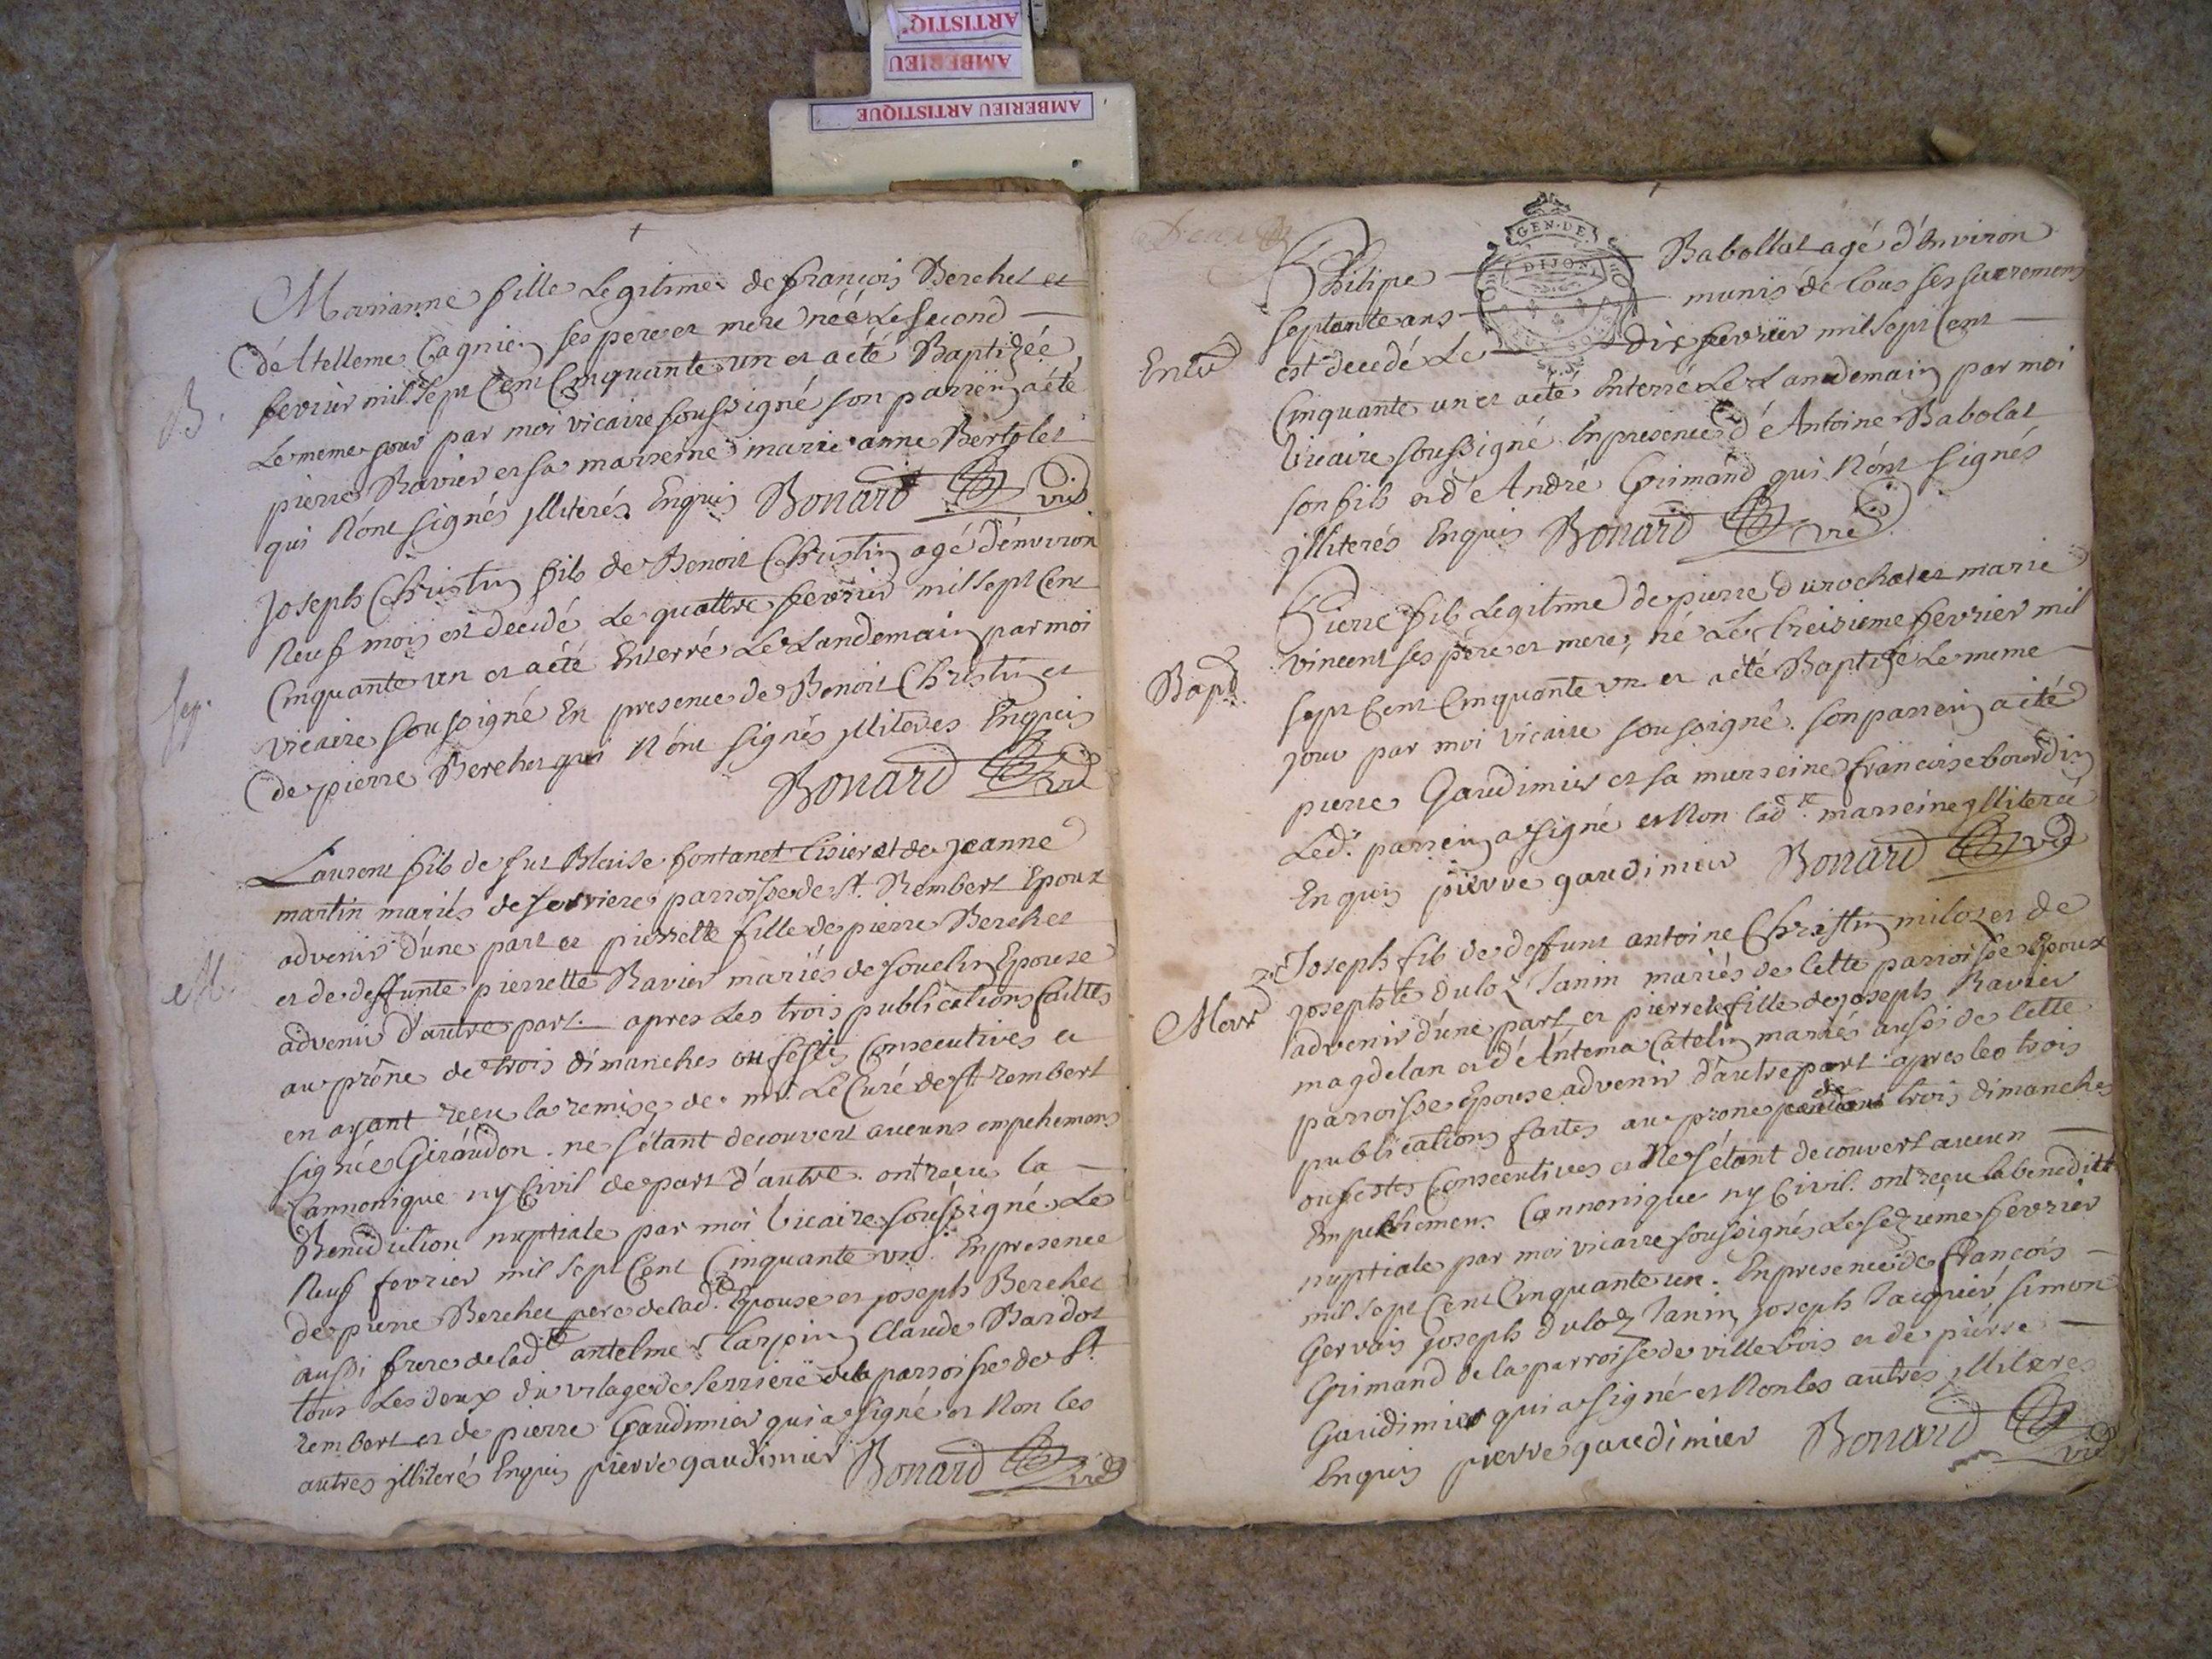 ARTISTIQ'
AMBERIEU
AMBERIEU ARTISTIQUE
Marianne fille Legitime de françois Berchet et
d'Atelleme Cagnien ses pere et mere née Le second
B. fevrier mil sept Cent Cinquante un et a été Baptizée
Le meme jour par moi vicaire soussigné son parrein a été
pierre Ravier et sa marreine marie anne Bertolet
qui n'ont signés jlliterés Enquis Bonard vic
Joseph Christin fils de Benoit Christin agé d'environ
neuf mois est decidé Le quattre fevrier mil sept Cent
Sep. Cinquante un et a été Enterré Le Landemain par moi
vicaire soussigné En presence de Benoit Christin et
de pierre Berchet qui n'ont signés jlliteres Enquis
Bonard vic
Laurent fils de fut Blaise fontanet et de jeanne
martin mariés de serriere parroisse de St. Rembert Epoux
advenir d'une part et pierrette fille de pierre Berchet
M. et de deffunte pierrette Ravier mariés de souclin Epouse
advenir d'autre part. apres Les trois publications faittes
au prône de trois dimanches ou festes Consecutives et
en ayant reçeu la remise de mr. Le Curé de St rembert
signée Giraudon. ne s'étant decouvert aucuns empehemens
Cannonique ny Civil de part d'autre. ont reçeu la
Benediction nuptiale par moi vicaire soussigné. Le
neuf fevrier mil sept Cent Cinquante un. En presence
de pierre Berchet pere de lad.te Epouse et joseph Berchet
aussi frere de lad.te antelme Tarpin Claude Bardot
tous Les deux du vilage de serriere de la parroisse de St
rembert et de pierre Gaudimier qui a signé et Non les
autres jlliterés Enquis pierre gaudimier Bonard vic
GEN·DE
DIJON
Philipe Babollat agé d'Environ
septante ans munis de tous ses sacremens
est decedé Le dix fevrier mil sept Cent
Cinquante un et a été Enterré Le Landemain par moi
Vicaire soussigné En presence d'Antoine Babolat
son fils et d'André Grimand qui N'ont signés
jlliterés Enquis Bonard vic
Pierre fils Legitime de pierre durochat et marie
vincent ses père et mere, né Le treizieme fevrier mil
Bapt. sept Cent Cinquante un et a été Baptizé Le meme
jour par moi Vicaire soussigné. son parrein a été
pierre Gaudimier et sa marreine francoise bourdin
Led. parrein a signé et Non lad.te marreine jlliterée
Enquis pierre gaudimier Bonard vic
Joseph fils de deffunt antoine Christin miloz et de
josephte duloz Janin mariés de Cette parroisse Epoux
advenir d'une part, et pierrete fille de joseph Ravier
magdelan et d'Antema Catelin mariés aussi de Cette
parroisse Epouse advenir d'autre part apres les trois
publications faites au prone de trois dimanches
ou festes Consecutives et Ne s'étant decouvert aucun
Empechement Cannonique ny Civil. ont reçeu la benedict
nuptiale par moi vicaire soussigné Le sezieme fevrier
mil sept Cent Cinquante un. En presence de françois
Gervais joseph duloz Janin joseph Jacquier, simon
Grimand de la parroise de villebois et de pierre
Gaudimier qui a signé et Non les autres jlliteres
Enquis pierre gaudimier Bonard vic